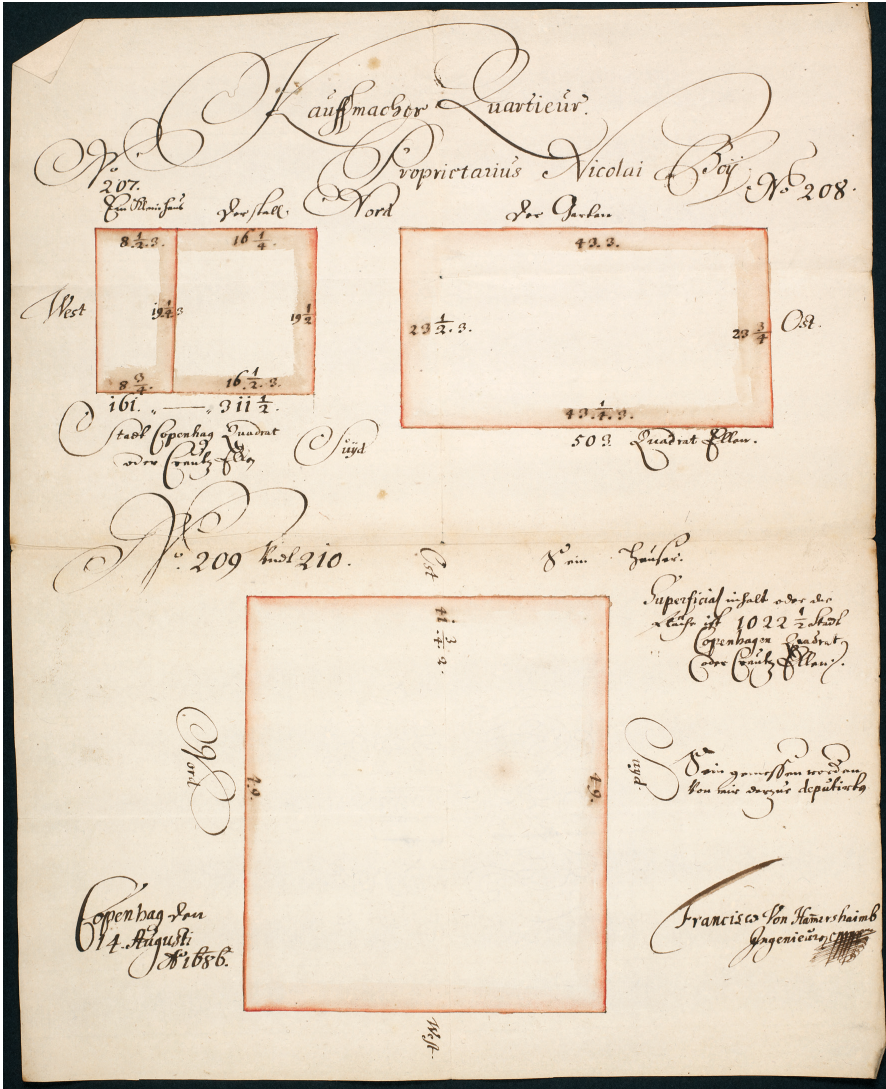 Kauffmacher Quartieur.
Proprietarius Nicolai Boij
No 207.
No 208.
Ein Kleinhaus
Der stall.
Nord
Der Garten
8 1/2. 3.
16 1/4
43. 3.
West
19 1/4 3
19 1/2
23 1/2. 3.
23 3/4
Ost.
8 3/4.
16 1/2. 3.
43 1/4. 3.
161. — 311 1/2.
Stadt Copenhag Quadrat
oder Creutz Ellen
Suijd
503 Quadrat Ellen.
No. 209 Undt 210.
Ost
Sein Häuser.
41 3/4 2.
Superficial inhalt oder die
fläche ist 1022 1/2 Stadt
Copenhagen Quadrat
oder Creutz Ellen.
Nord
49.
49.
Suijd
Sein gemessen worden
Von mir darzue deputirte
Copenhag den
14. Augusti
Ao 1686.
Francisco Von Hamershaimb
Ingenieur
West.